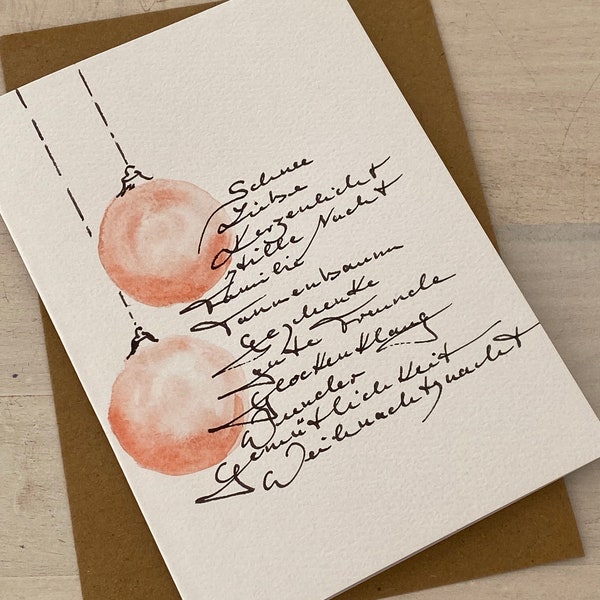 Schnee
Liebe
Kerzenlicht
Stille Nacht
Familie
Tannenbaum
Geschenke
gute Freunde
Glockenklang
Wunder
Gemütlichkeit
Weihnachtsnacht